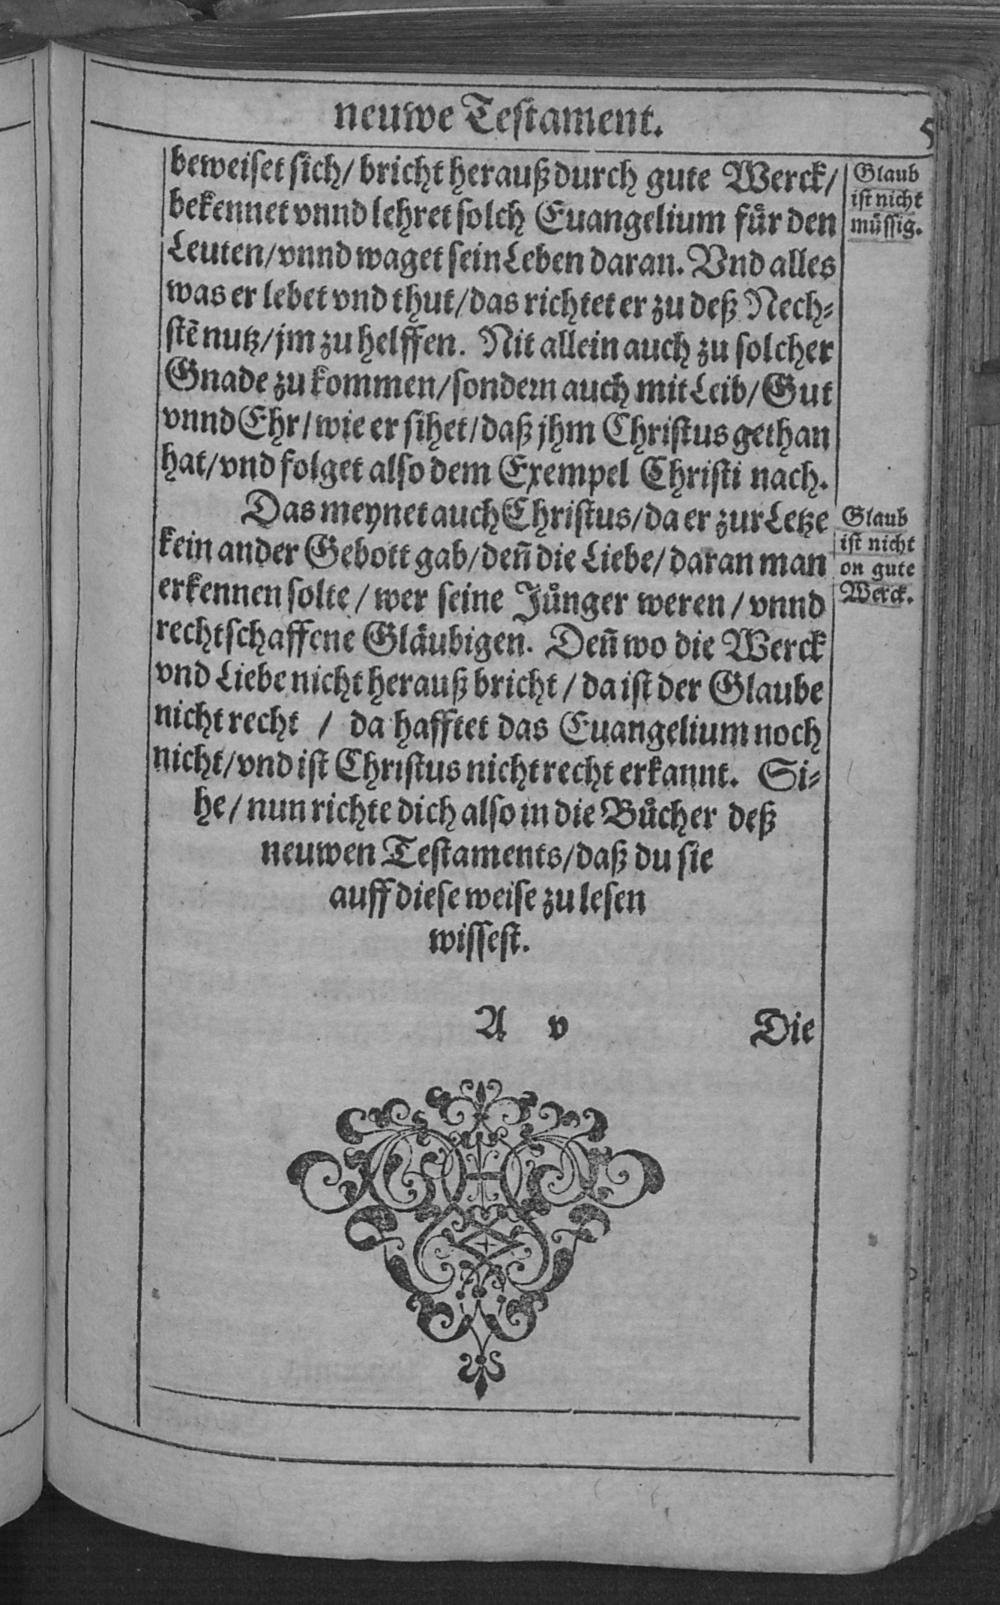 neuwe Testament.
5
beweiset sich/ bricht herauß durch gute Werck/
bekennet vnnd lehret solch Euangelium fuͤr den
Leuten/vnnd waget sein Leben daran. Vnd alles
was er lebet vnd thut/das richtet er zu deß Nech⸗
stē nutz/jm zu helffen. Nit allein auch zu solcher
Gnade zu kommen/sondern auch mit Leib/Gut
vnnd Ehr/wie er sihet/daß jhm Christus gethan
hat/vnd folget also dem Exempel Christi nach.
Das meynet auch Christus/da er zur Letze
kein ander Gebott gab/deñ die Liebe/daran man
erkennen solte/wer seine Juͤnger weren/vnnd
rechtschaffene Glaͤubigen. Deñ wo die Werck
vnd Liebe nicht herauß bricht/da ist der Glaube
nicht recht / da hafftet das Euangelium noch
nicht/vnd ist Christus nicht recht erkannt. Si⸗
he/nun richte dich also in die Buͤcher deß
neuwen Testaments/daß du sie
auff diese weise zu lesen
wissest.
Glaub
ist nicht
muͤssig.
Glaub
ist nicht
on gute
Werck.
A v
Die